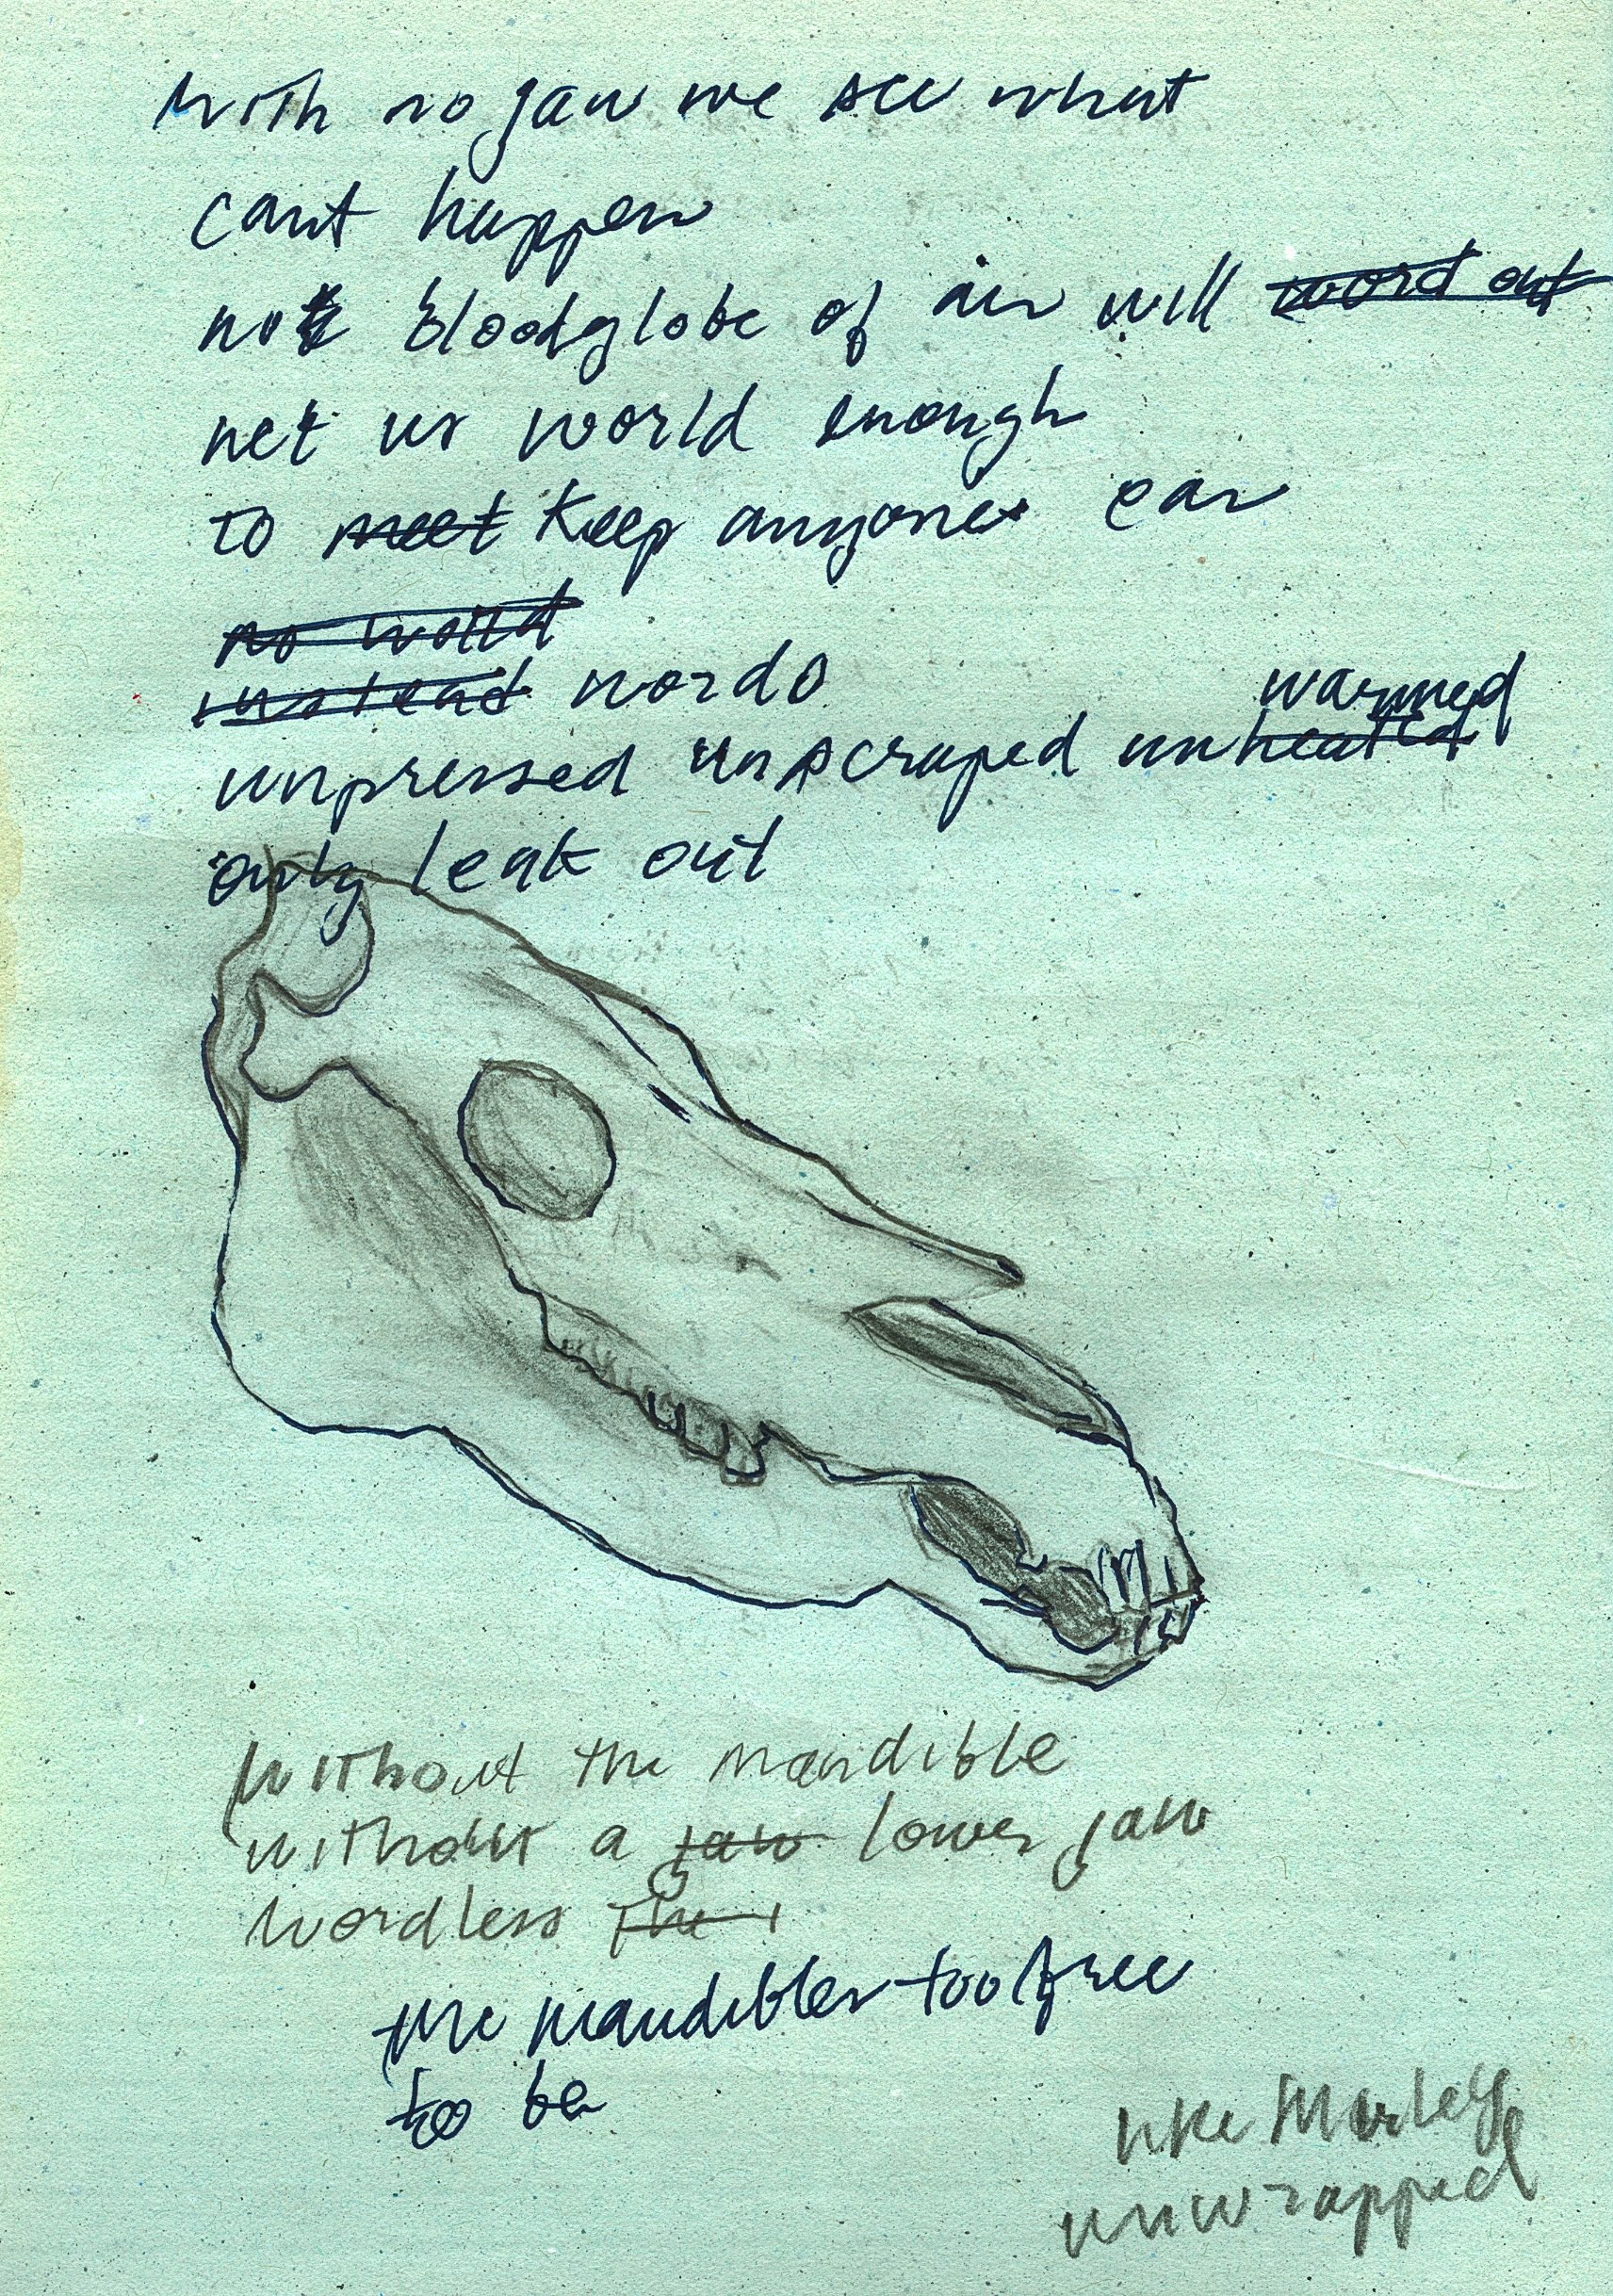 with no jaw we see what
cant happen
no bloodglobe of air will word out
net us world enough
to meet keep anyones ear
no world
instead words
warmed
unpressed unscraped unheated
only leak out
without the mandible
without a jaw lower jaw
wordless the
the mandibles too free
to be
like Marley
unwrapped